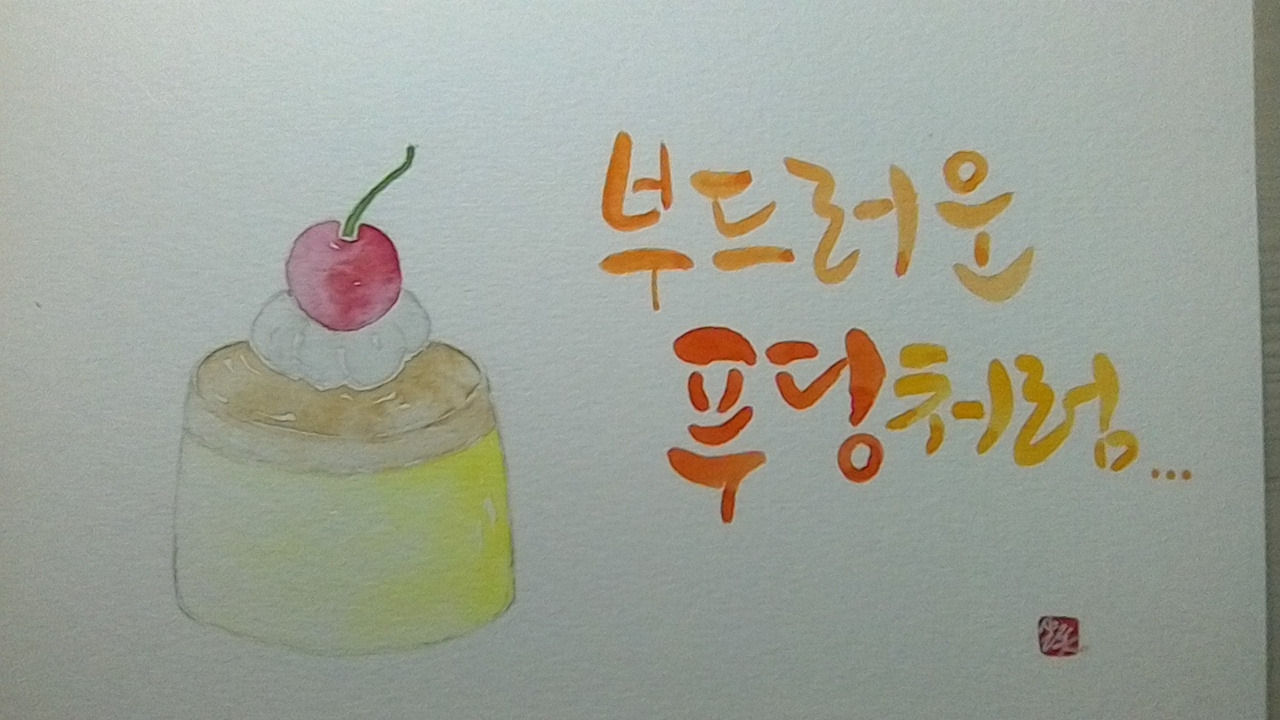 부드러운
푸딩처럼...